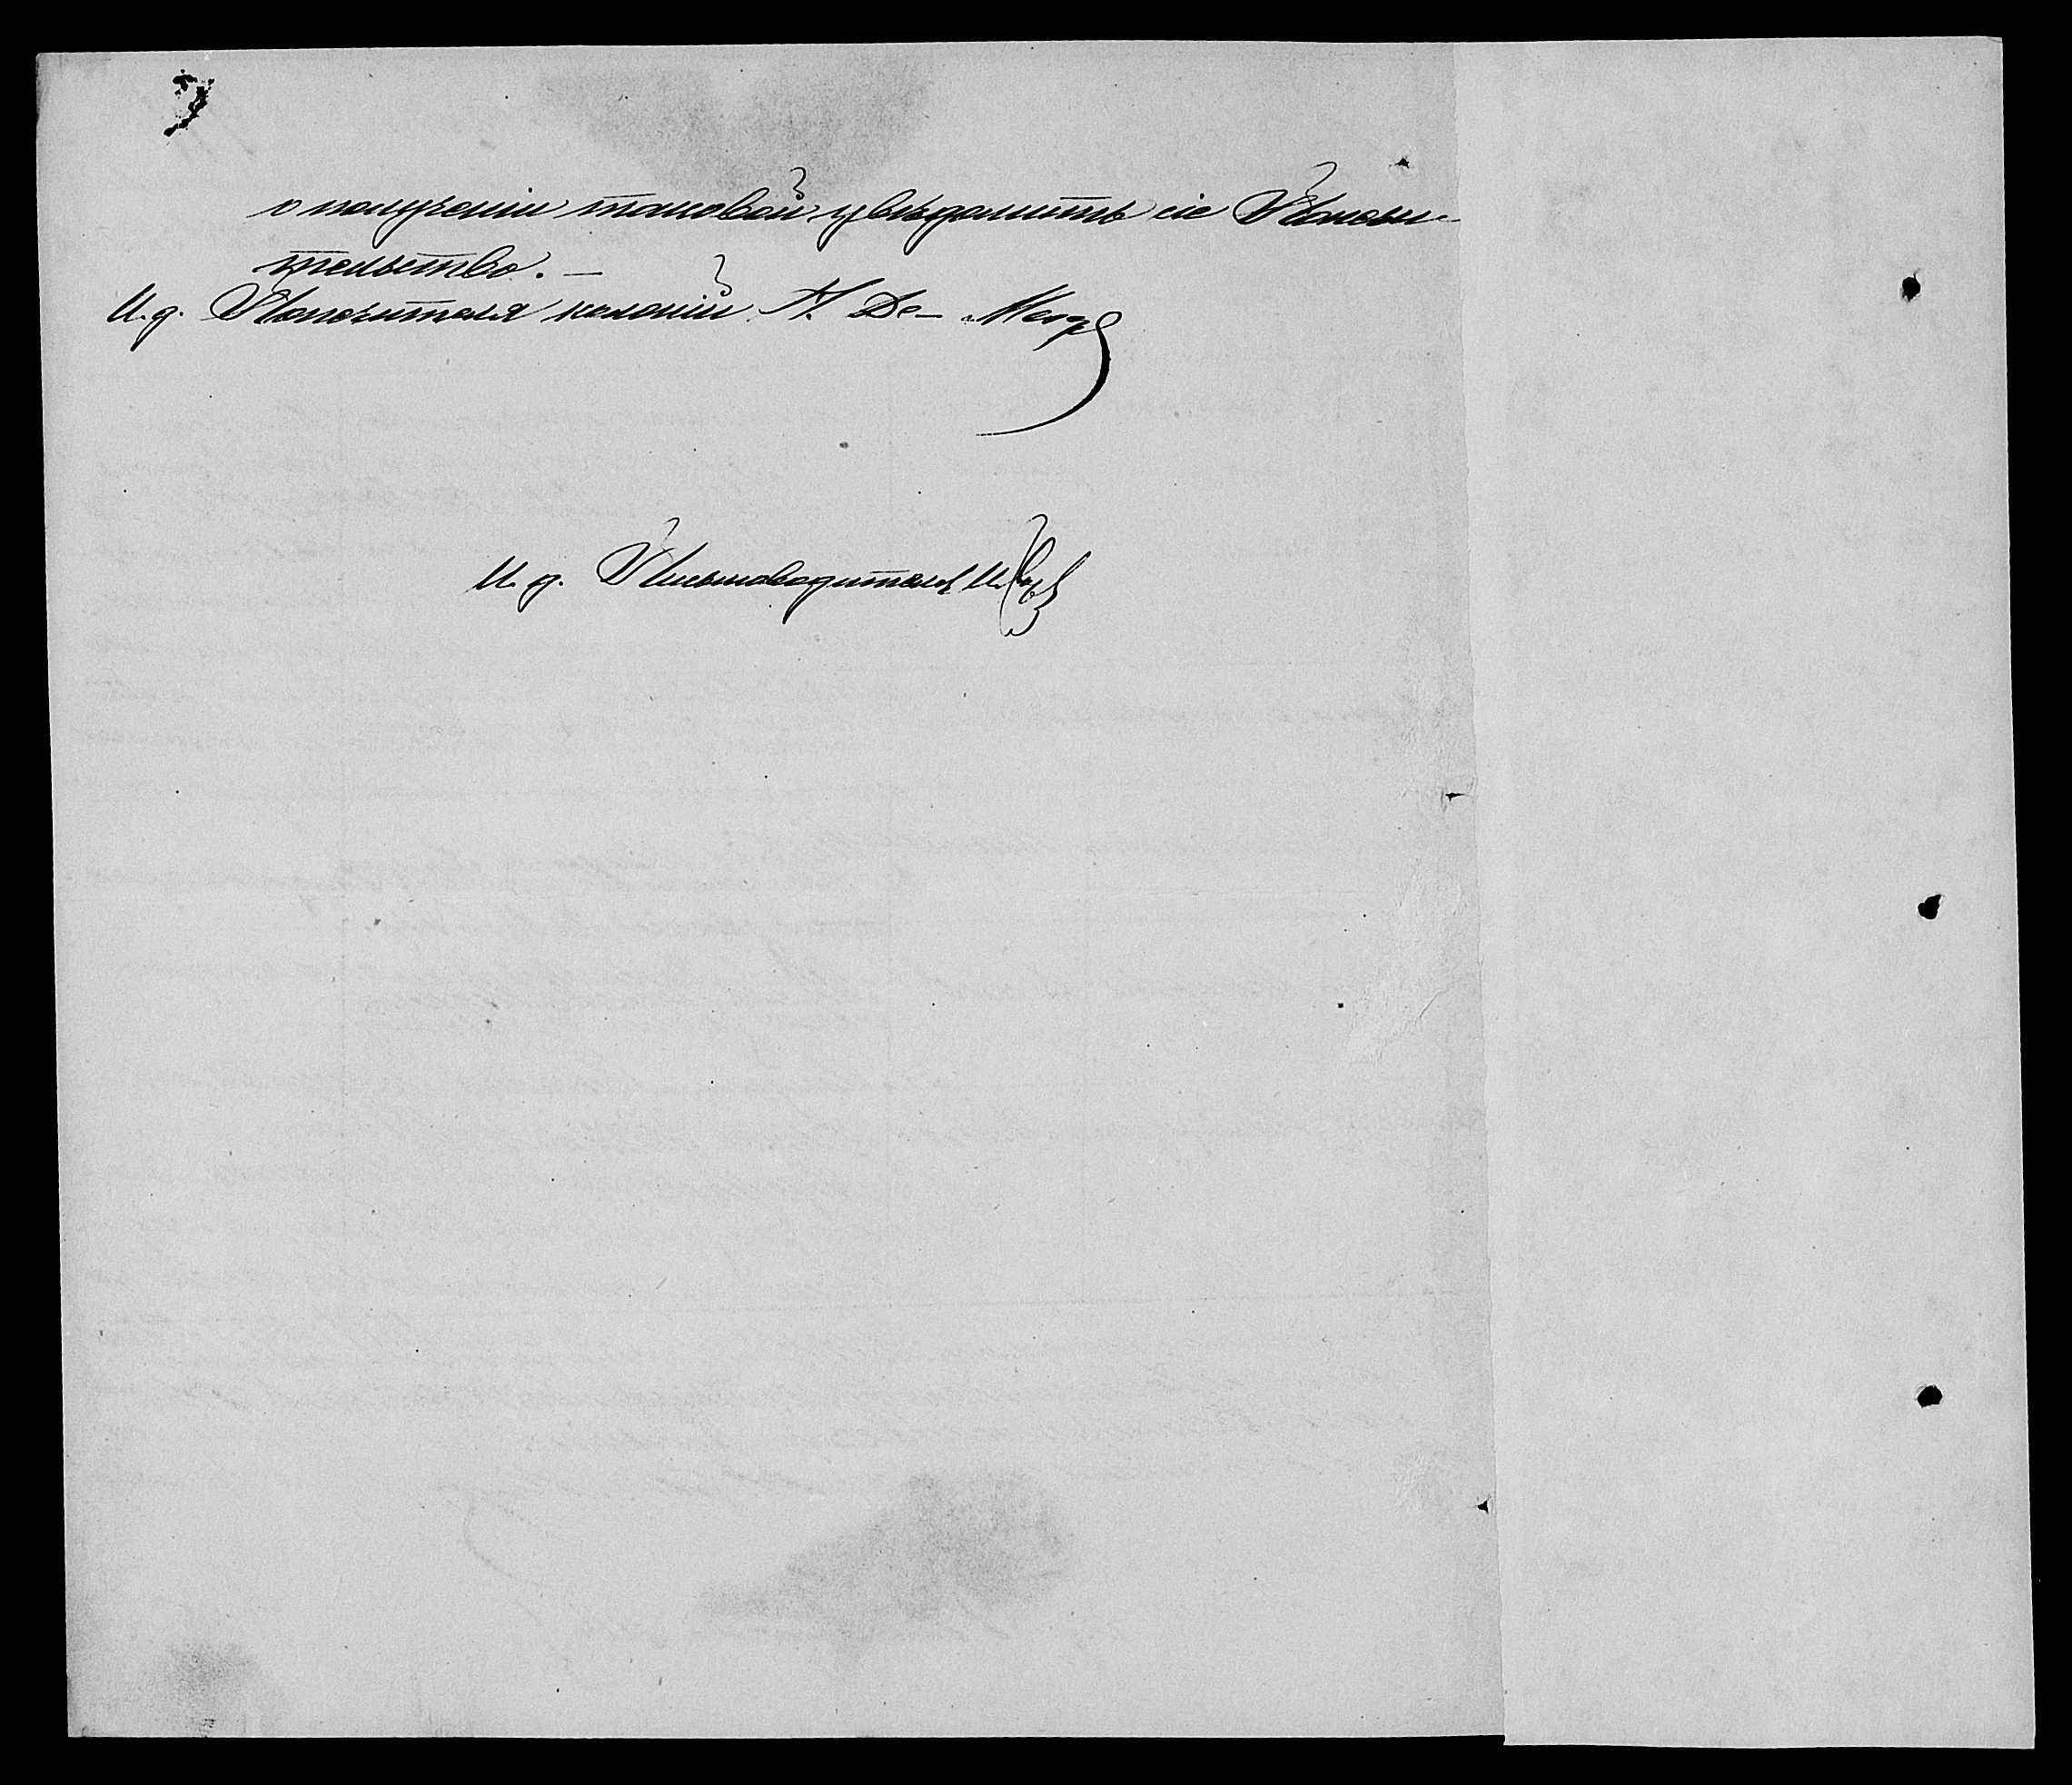 о полученіи таковой увѣдомить сіе Попечи-
тельство. —
И. д. Попечителя колоній А. Де-
И. д. Письмоводителя И.